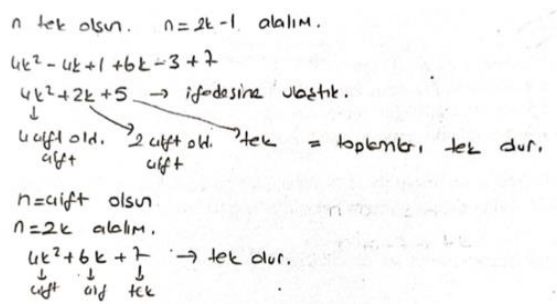 n tek olsun. n=2k-1 alalım.
4k²-4k+1+6k-3+7
4k²+2k+5 → ifadesine ulaştık.
↓
4 çift old. 2 çift old. tek = toplamları tek dur.
çift çift
n=çift olsun
n=2k alalım.
4k²+6k+7 → tek olur.
↓ ↓ ↓
çift çif tek